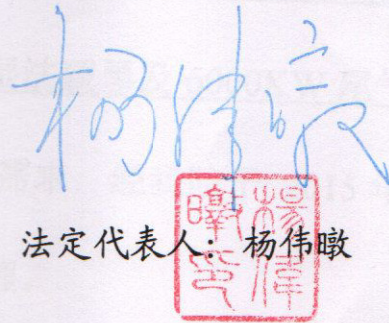 杨伟暾
法定代表人：杨伟暾
楊偉暾印